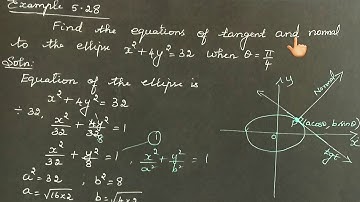 Example 5.28
Find the equations of tangent and normal
to the ellipse x² + 4y² = 32 when θ = π/4
Soln:
Equation of the ellipse is
x² + 4y² = 32
÷ 32, x²/32 + 4y²/32 = 1
8
x²/32 + y²/8 = 1, x²/a² + y²/b² = 1
1
a² = 32, b² = 8
a = √16×2 b = √4×2
y
Normal
P(a cosθ, b sinθ)
x
o